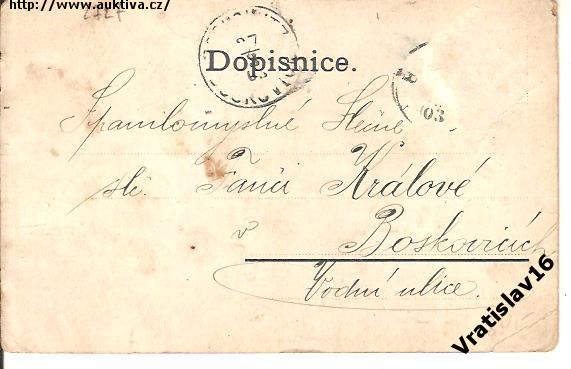 http://www.auktiva.cz/
2727
Dopisnice.
03
Spanilomyslné Slečně
slč. Fanči Králové
v Boskovicích
Vodní ulice.
Vratislav16